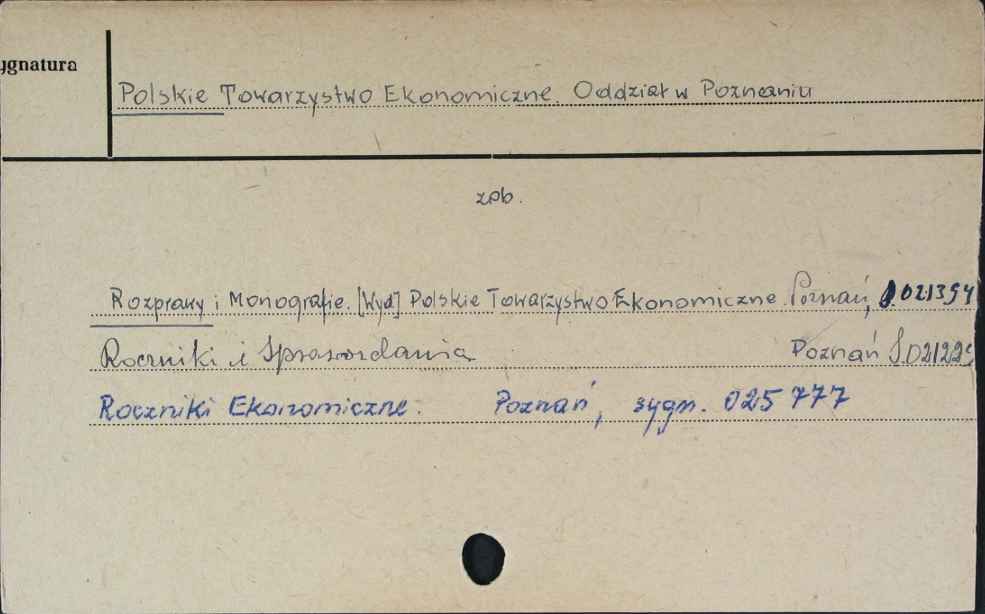 ygnatura
Polskie Towarzystwo Ekonomiczne. Oddział w Poznaniu
zob.
Rozprawy i Monografie. [Wyd] Polskie Towarzystwo Ekonomiczne. Poznań, S.021394
Roczniki i Sprawozdania Poznań S.021229
Roczniki Ekonomiczne. Poznań, sygn. 025777